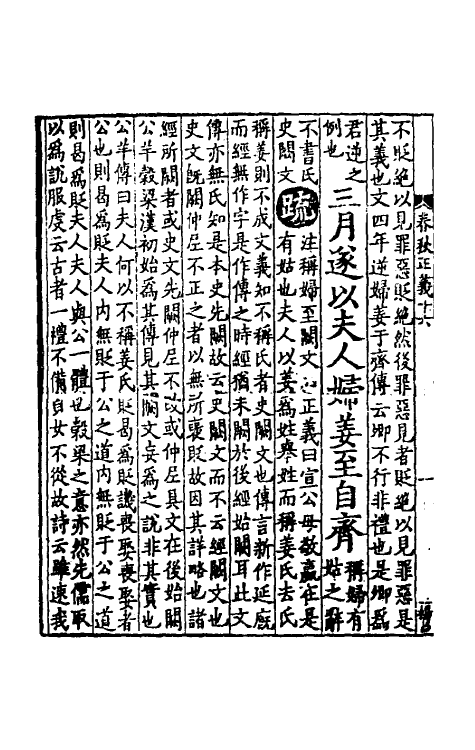 不貶絕以見罪惡貶絕然後罪惡見者貶絕以見罪惡是
其義也文四年逆婦姜于齊傳云卿不行非禮也是卿爲
君逆之
例也
三月遂以夫人婦姜至自齊
稱婦有
姑之辭
不書氏
史闕文
疏
注稱婦至闕文 正義曰宣公母敬嬴在是
有姑也夫人以姜爲姓舉姓而稱姜氏去氏
稱姜則不成文義知不稱氏者史闕文也傳言新作延廄
而經無作字是作傳之時經猶未闕於後經始闕耳此文
傳亦無氏知是本史先闕故云史闕文而不云經闕文也
史文既闕仲尼不正之者以無所褒貶故因其詳略也諸
經所闕者或史文先闕仲尼不改或仲尼具文在後始闕
公羊穀梁漢初始爲其傳見其闕文妄爲之說非其實也
公羊傳曰夫人何以不稱姜氏貶曷爲貶譏喪娶喪娶者
公也則曷爲貶夫人內無貶于公之道內無貶于公之道
則曷爲貶夫人夫人與公一體也穀梁之意亦然先儒取
以爲說服虔云古者一禮不備貞女不從故詩云雖速我
春秋正義十六
一